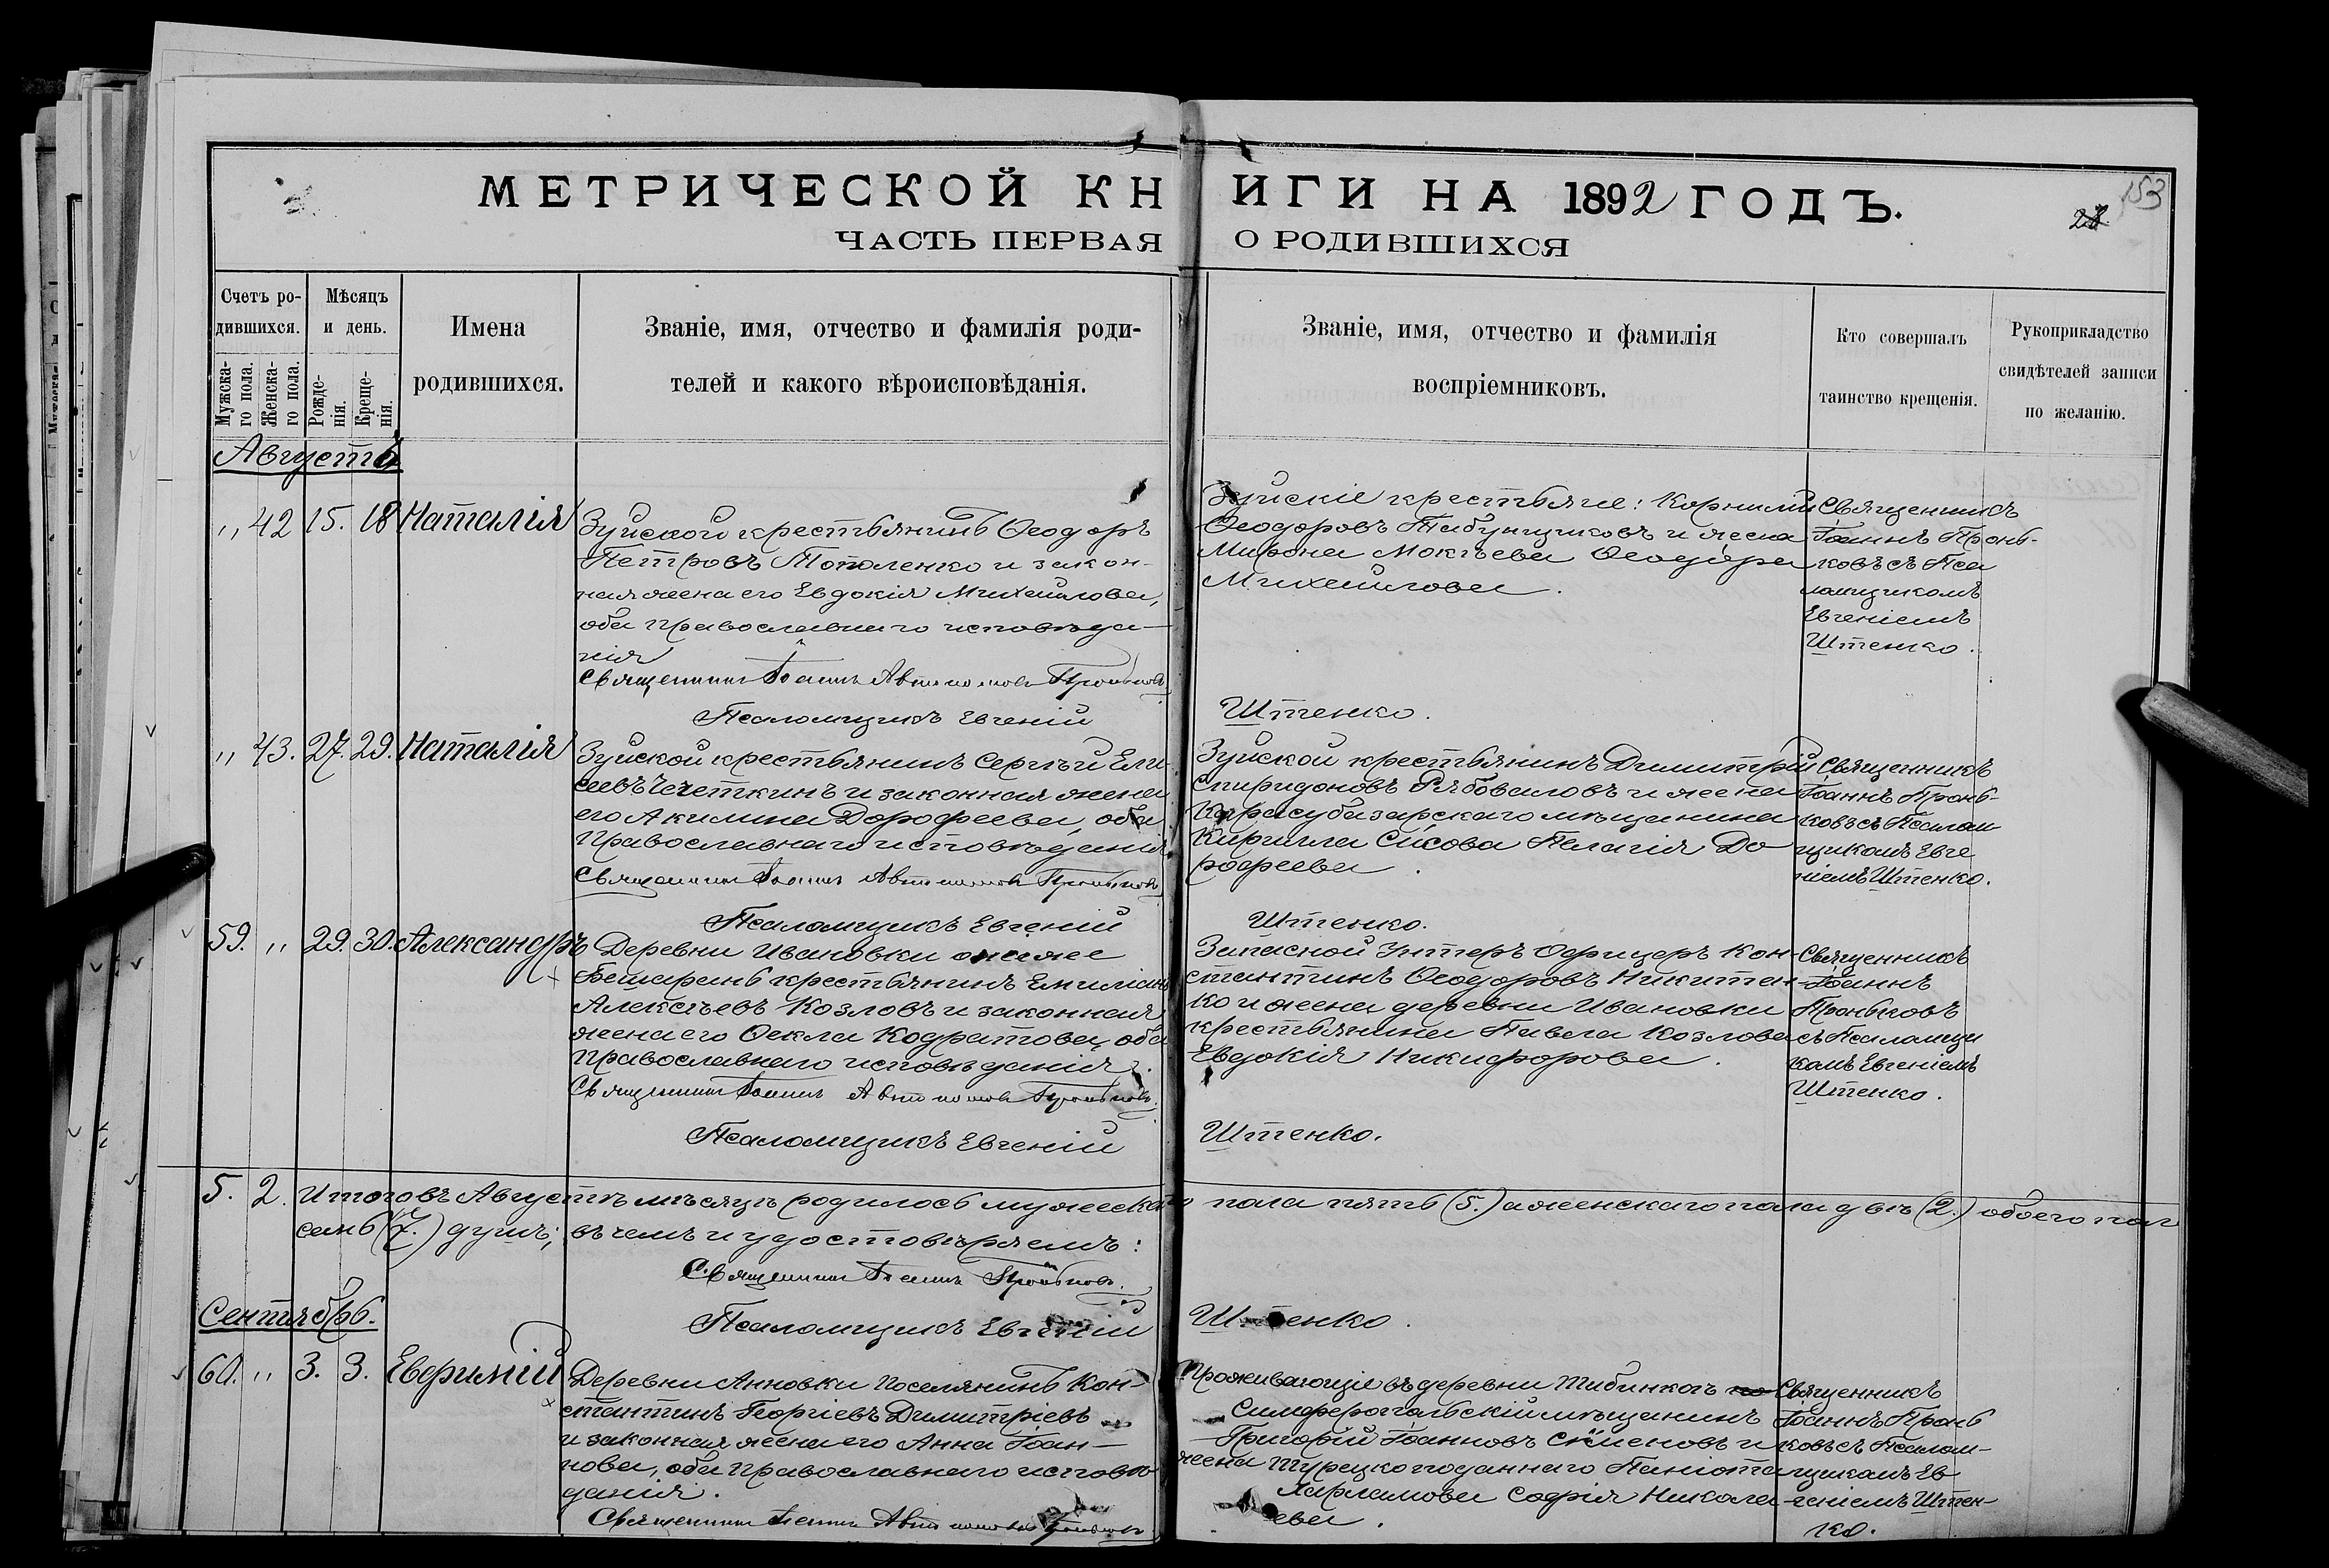 МЕТРИЧЕСКОЙ КНИГИ НА 1892 ГОДЪ.
153
28
ЧАСТЬ ПЕРВАЯ О РОДИВШИХСЯ
Счетъ ро-
дившихся.
Мужска-
го пола.
Женска-
го пола.
Мѣсяцъ
и день.
Рожде-
нія.
Креще-
нія.
Имена
родившихся.
Званіе, имя, отчество и фамилія роди-
телей и какого вѣроисповѣданія.
Званіе, имя, отчество и фамилія
воспріемниковъ.
Кто совершалъ
таинство крещенія.
Рукоприкладство
свидѣтелей записи
по желанію.
Августъ
„ 42 15. 18 Наталія
Зуйской крестьянинъ Ѳеодоръ
Петровъ Тополенко и закон-
ная жена его Евдокія Михайлова,
оба православнаго исповѣда-
нія
Священникъ Іоаннъ Автономовъ Проньковъ
Псаломщикъ Евгеній
Зуйскіе крестьяне: Корнилій
Ѳеодоровъ Табунщиковъ и жена
Мирона Мокѣева Ѳеодора
Михайлова.
Штенко.
Священникъ
Іоаннъ Пронь-
ковъ съ Пса
ломщикомъ
Евгеніемъ
Штенко.
„ 43. 27. 29. Наталія
Зуйской крестьянинъ Сергѣй Ели-
сеевъ Чечеткинъ и законная жена
его Акилина Дорофеева, оба
Православнаго исповѣданія
Священникъ Іоаннъ Автономовъ Проньковъ
Псаломщикъ Евгеній
Зуйской крестьянинъ Димитрій
Спиридоновъ Рябоваловъ и жена
Карасубазарскаго мѣщанина
Кирилла Сисова Пелагія До
рофеева.
Штенко.
Священникъ
Іоаннъ Пронь-
ковъ съ Псалом
щикомъ Евге
ніемъ Штенко.
59. „ 29. 30. Александръ
Деревни Ивановки онаже
Бешарань крестьянинъ Емиліанъ
Алексѣевъ Козловъ и законная
жена его Ѳекла Кодратова, оба
Православнаго исповѣданія.
Священникъ Іоаннъ Автономовъ Проньковъ.
Псаломщикъ Евгеній
Запасной Унтеръ Офицеръ Кон-
стантинъ Ѳеодоровъ Никитен-
ко и жена деревни Ивановки
крестьянина Павла Козлова
Евдокія Никифорова.
Штенко.
Священникъ
Іоаннъ
Проньковъ
съ Псаломщи
комъ Евгеніемъ
Штенко.
5. 2. Итого въ Августѣ мѣсяцѣ родилось мужескаго пола пять (5.) а женскаго пола двѣ (2.) обоего пол
семь (7.) душъ; въ чемъ и удостовѣряемъ:
Священникъ Іоаннъ Проньковъ.
Псаломщикъ Евгеній Штенко.
Сентябрь.
60. „ 3. 3. Евфимій
Деревни Анновки поселянинъ Кон-
стантинъ Георгіевъ Димитріевъ
и законная жена его Анна Іоан-
нова, оба православнаго исповѣ
данія.
Священникъ Іоаннъ Автономовъ Проньковъ
Проживающіе въ деревни
Симферопольскій мѣщанинъ
Григорій Іоанновъ Сименовъ и
жена Турецкоподаннаго Паніота
Харламова Софія Никола-
ева.
Священникъ
Іоаннъ Пронь
ковъ съ Псалом-
щикомъ Ев
геніемъ Штен-
ко.